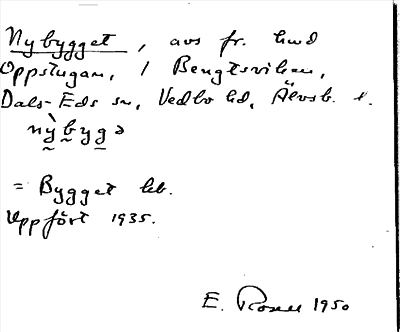 Nybygget, avs fr. hmd
Oppstugan, i Bengtsviken,
Dals-Eds sn, Vedbo hd, Älvsb. l.
nỳbygə
= Bygget leb.
Uppfört 1935.
E. Rosell 1950